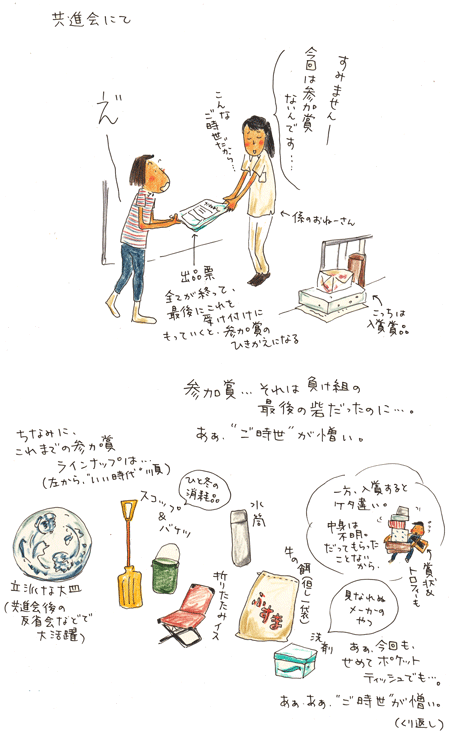 共進会にて
すみませんー
今回は参加賞
ないんです…
こんな
ご時世だから…
え゛
←係のおねーさん
出品票
全てが終って、
最後にこれを
受け付けに
もっていくと、参加賞の
ひきかえになる
こっちは
入賞賞品
参加賞…それは負け組の
最後の砦だったのに…。
あぁ、“ご時世”が憎い。
ちなみに、
これまでの参加賞
ラインナップは…
(左から、“いい時代”順)
立派な大皿
(共進会後の
反省会などで
大活躍)
スコップ
&
バケツ
ひと冬の
消耗品
折りたたみイス
水筒
牛の餌(但し1袋)
ふすま
洗剤
見なれぬ
メーカーの
やつ
一方、入賞すると
ケタ違い。
中身は
不明。
だってもらった
ことないから
賞状&
トロフィーも
あぁ、今回も、
せめてポケット
ティッシュでも…。
あぁ、あぁ、“ご時世”が憎い。
(くり返し)